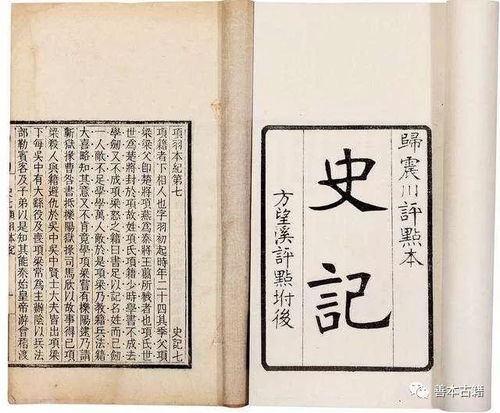 歸震川評點本
史記
方望溪評點坿後
項羽本紀第七 史記七
項籍者下相人也字羽初起時年二十四其季父項
梁梁父即楚將項燕為秦將王翦所戮者也項氏世
世為楚將封於項故姓項氏項籍少時學書不成去
學劍又不成項梁怒之籍曰書足以記名姓而已劍
一人敵不足學學萬人敵於是項梁乃教籍兵法籍
大喜略知其意又不肯竟學項梁嘗有櫟陽逮乃請
蘄獄掾曹咎書抵櫟陽獄掾司馬欣以故事得已項
梁殺人與籍避仇於吳中吳中賢士大夫皆出項梁
下每吳中有大繇役及喪項梁常為主辦陰以兵法
部勒賓客及子弟以是知其能秦始皇帝游會稽渡
善本古籍